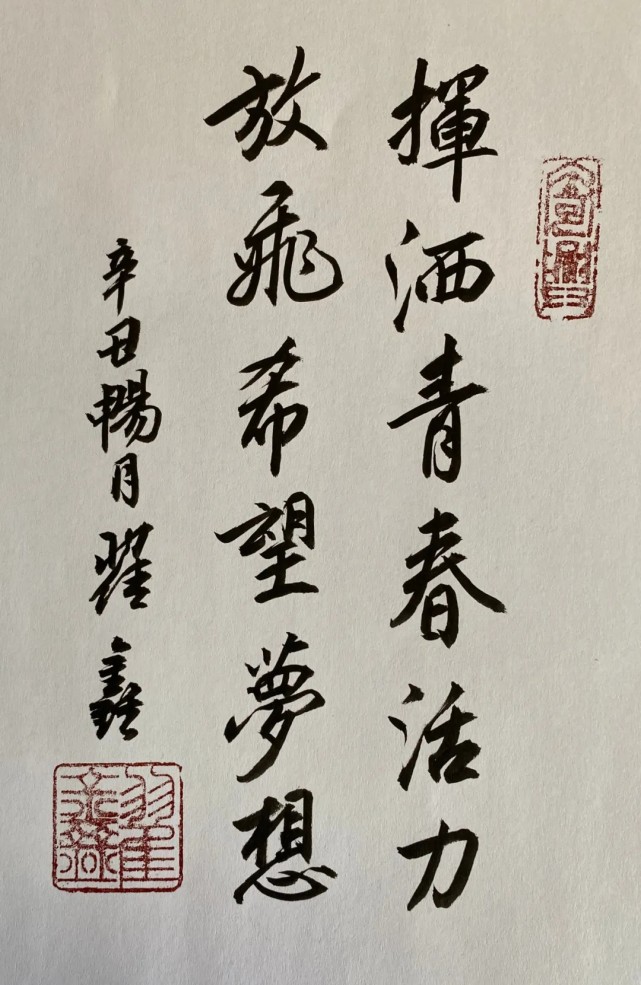 揮洒青春活力
放飛希望夢想
辛丑暢月翟鑫